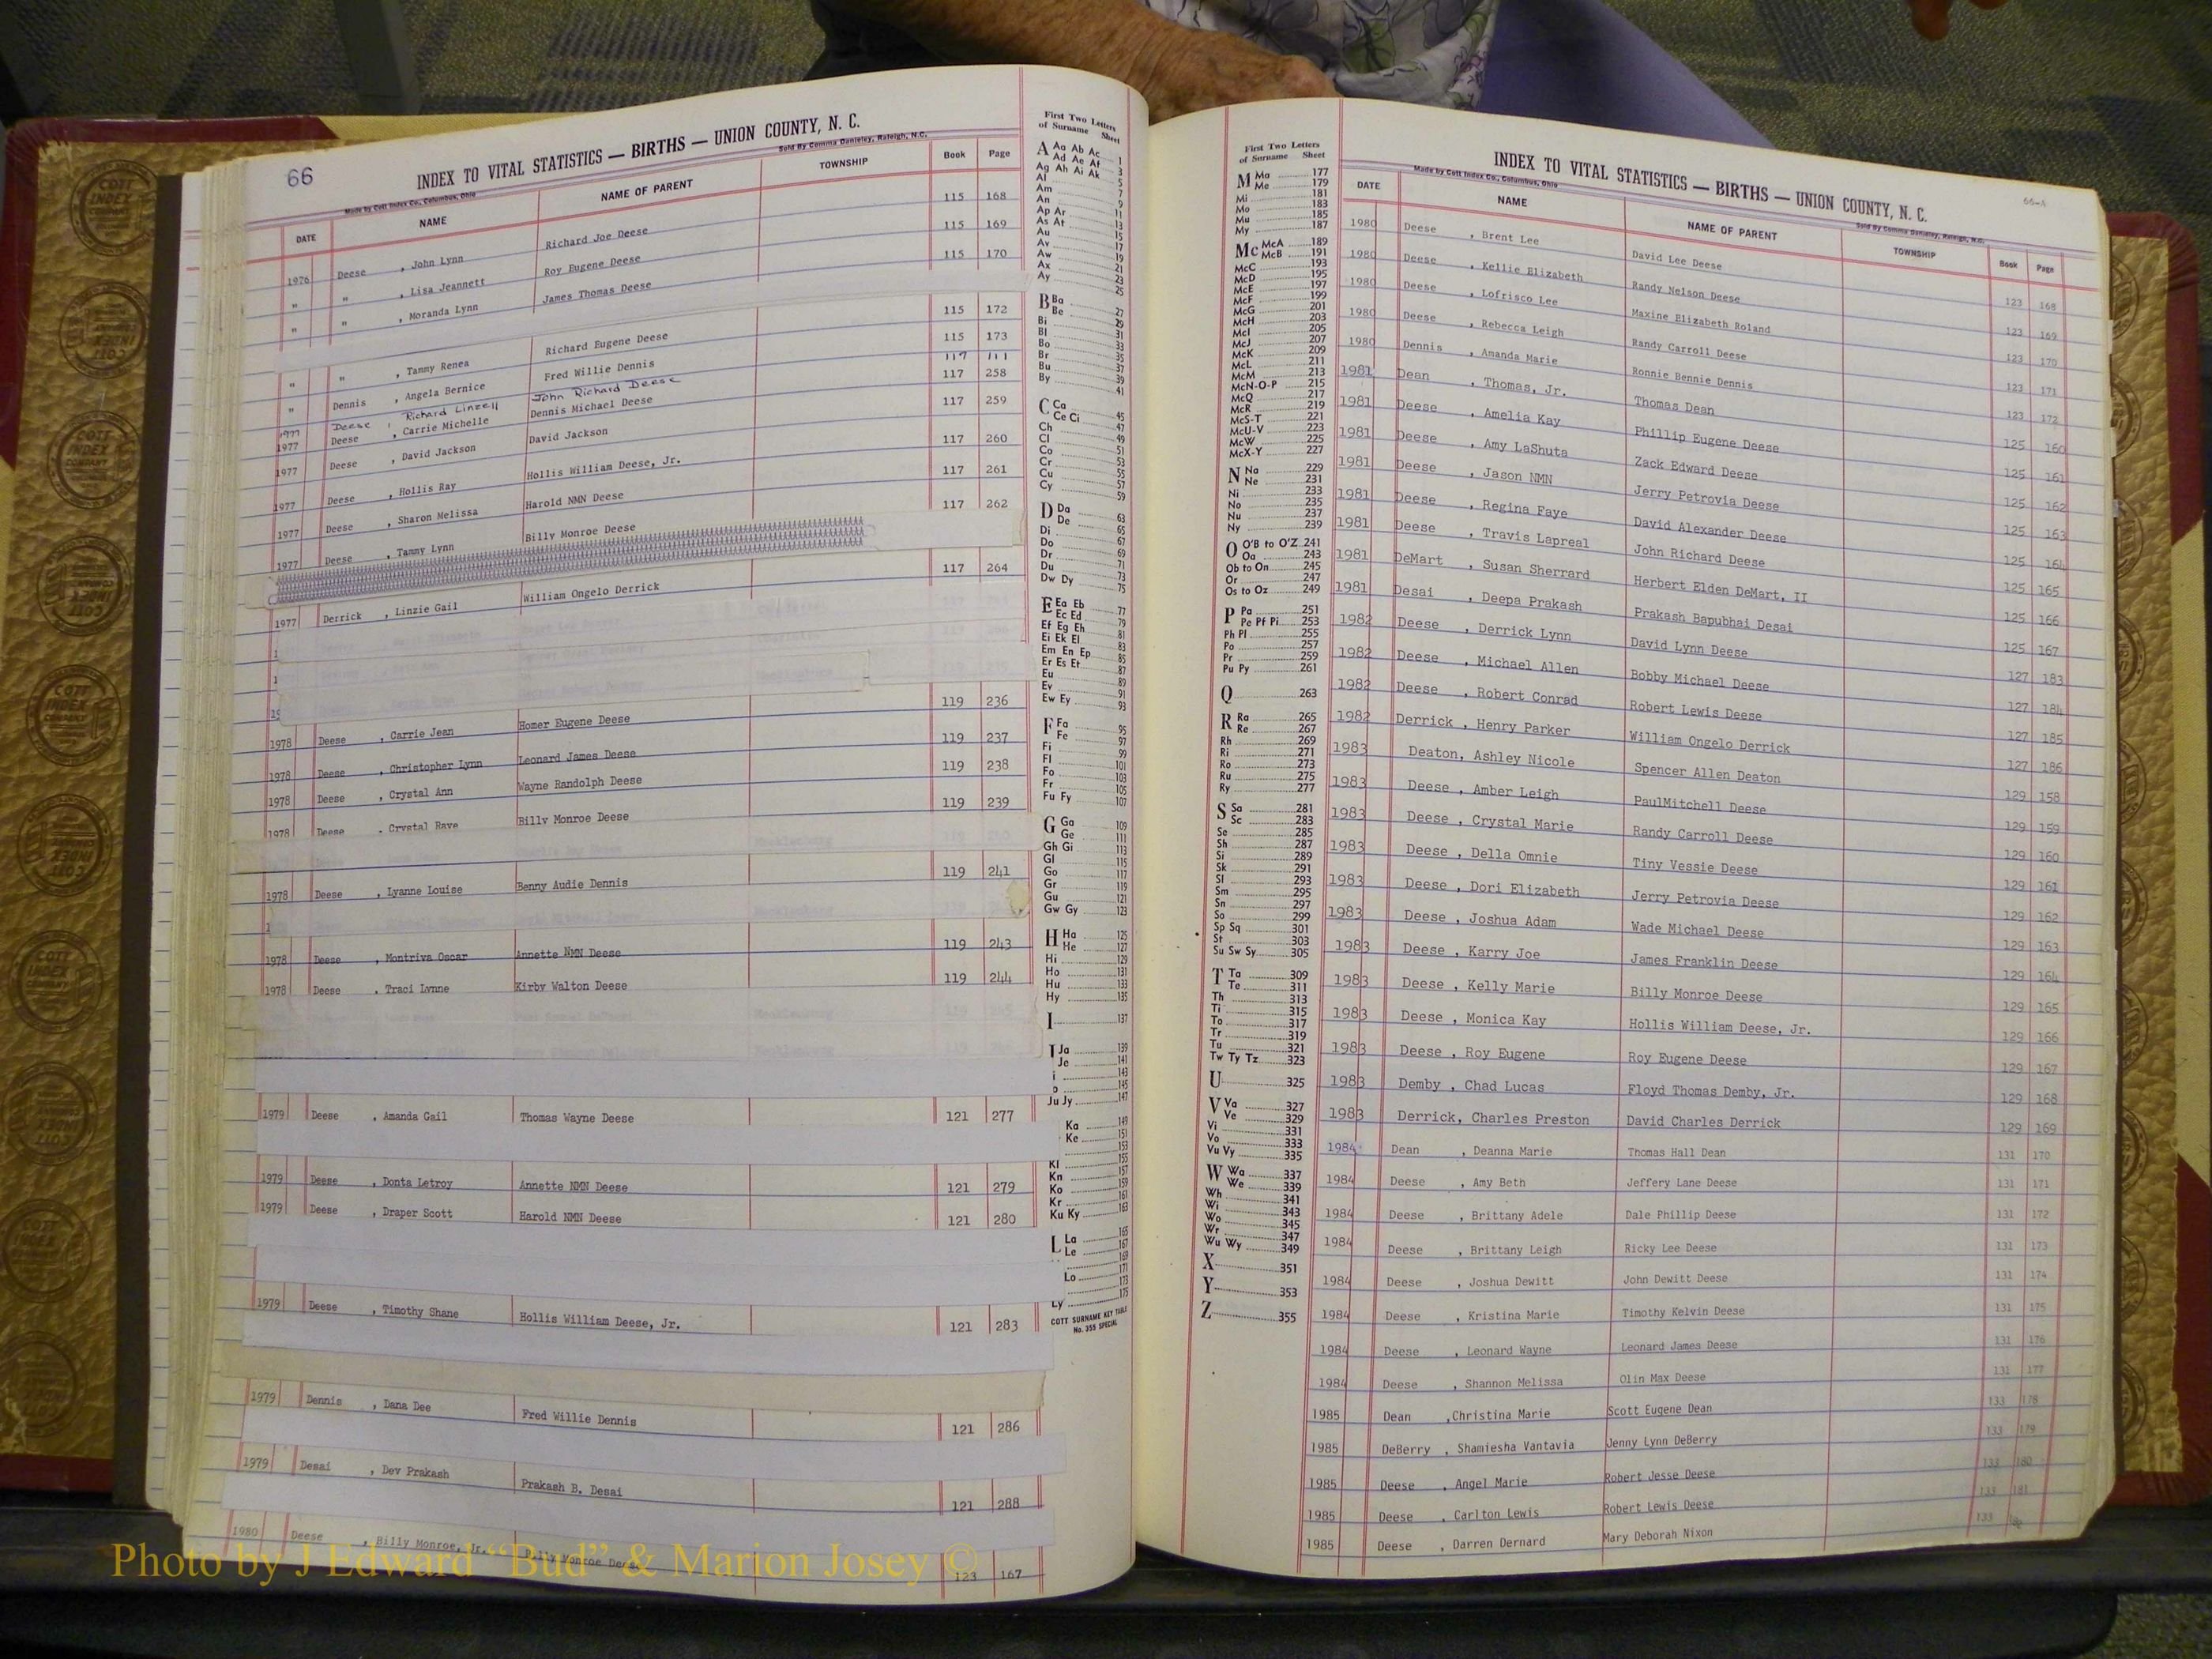 66
INDEX TO VITAL STATISTICS — BIRTHS — UNION COUNTY, N. C.
Made by Cott Index Co., Columbus, Ohio
Sold By Comma Danieley, Raleigh, N.C.
DATE NAME NAME OF PARENT TOWNSHIP Book Page
1976 Deese , John Lynn Richard Joe Deese 115 168
" " , Lisa Jeannett Roy Eugene Deese 115 169
" " , Moranda Lynn James Thomas Deese 115 170
" " , Tammy Renea Richard Eugene Deese 115 172
" Dennis , Angela Bernice Fred Willie Dennis 115 173
1977 Deese , Richard Linzell John Richard Deese 117 111
1977 Deese , Carrie Michelle Dennis Michael Deese 117 258
1977 Deese , David Jackson David Jackson 117 259
1977 Deese , Hollis Ray Hollis William Deese, Jr. 117 260
1977 Deese , Sharon Melissa Harold NMN Deese 117 261
1977 Deese , Tammy Lynn Billy Monroe Deese 117 262
1977 Derrick , Linzie Gail William Ongelo Derrick 117 264
1978 Deese , Carrie Jean Homer Eugene Deese 119 236
1978 Deese , Christopher Lynn Leonard James Deese 119 237
1978 Deese , Crystal Ann Wayne Randolph Deese 119 238
1978 Deese , Crystal Raye Billy Monroe Deese 119 239
1978 Deese , Lyanne Louise Benny Audie Dennis 119 241
1978 Deese , Montriva Oscar Annette NMN Deese 119 243
1978 Deese , Traci Lynne Kirby Walton Deese 119 244
1979 Deese , Amanda Gail Thomas Wayne Deese 121 277
1979 Deese , Donta Letroy Annette NMN Deese 121 279
1979 Deese , Draper Scott Harold NMN Deese 121 280
1979 Deese , Timothy Shane Hollis William Deese, Jr. 121 283
1979 Dennis , Dana Dee Fred Willie Dennis 121 286
1979 Desai , Dev Prakash Prakash B. Desai 121 288
1980 Deese , Billy Monroe, Jr. Billy Monroe Deese 123 167
First Two Letters
of Surname Sheet
A Aa Ab Ac 1
Ad Ae Af 3
Ag Ah Ai Ak 5
Al 7
Am 9
An 11
Ap Ar 13
As At 15
Au 17
Av 19
Aw 21
Ax 23
Ay 25
B Ba 27
Be 29
Bi 31
Bl 33
Bo 35
Br 37
Bu 39
By 41
C Ca 45
Ce Ci 47
Ch 49
Cl 51
Co 53
Cr 55
Cu 57
Cy 59
D Da 63
De 65
Di 67
Do 69
Dr 71
Du 73
Dw Dy 75
E Ea Eb 77
Ec Ed 79
Ef Eg Eh 81
Ei Ek El 83
Em En Ep 85
Er Es Et 87
Eu 89
Ev 91
Ew Ey 93
F Fa 95
Fe 97
Fi 99
Fl 101
Fo 103
Fr 105
Fu Fy 107
G Ga 109
Ge 111
Gh Gi 113
Gl 115
Go 117
Gr 119
Gu 121
Gw Gy 123
H Ha 125
He 127
Hi 129
Ho 131
Hu 133
Hy 135
I 137
J Ja 139
Je 141
i 143
o 145
Ju Jy 147
Ka 149
Ke 151
153
Kl 155
Kn 157
Ko 159
Kr 161
Ku Ky 163
L La 165
Le 167
169
Lo 171
173
Ly 175
COTT SURNAME KEY TABLE
No. 355 SPECIAL
First Two Letters
of Surname Sheet
M Ma 177
Me 179
Mi 181
Mo 183
Mu 185
My 187
Mc McA 189
McB 191
McC 193
McD 195
McE 197
McF 199
McG 201
McH 203
McI 205
McJ 207
McK 209
McL 211
McM 213
McN-O-P 215
McQ 217
McR 219
McS-T 221
McU-V 223
McW 225
McX-Y 227
N Na 229
Ne 231
Ni 233
No 235
Nu 237
Ny 239
O O'B to O'Z 241
Oa 243
Ob to On 245
Or 247
Os to Oz 249
P Pa 251
Pe Pf Pi 253
Ph Pl 255
Po 257
Pr 259
Pu Py 261
Q 263
R Ra 265
Re 267
Rh 269
Ri 271
Ro 273
Ru 275
Ry 277
S Sa 281
Sc 283
Se 285
Sh 287
Si 289
Sk 291
Sl 293
Sm 295
Sn 297
So 299
Sp Sq 301
St 303
Su Sw Sy 305
T Ta 309
Te 311
Th 313
Ti 315
To 317
Tr 319
Tu 321
Tw Ty Tz 323
U 325
V Va 327
Ve 329
Vi 331
Vo 333
Vu Vy 335
W Wa 337
We 339
Wh 341
Wi 343
Wo 345
Wr 347
Wu Wy 349
X 351
Y 353
Z 355
66-A
INDEX TO VITAL STATISTICS — BIRTHS — UNION COUNTY, N. C.
Made by Cott Index Co., Columbus, Ohio
Sold By Comma Danieley, Raleigh, N.C.
DATE NAME NAME OF PARENT TOWNSHIP Book Page
1980 Deese , Brent Lee David Lee Deese 123 168
1980 Deese , Kellie Elizabeth Randy Nelson Deese 123 169
1980 Deese , Lofrisco Lee Maxine Elizabeth Roland 123 170
1980 Deese , Rebecca Leigh Randy Carroll Deese 123 171
1980 Dennis , Amanda Marie Ronnie Bennie Dennis 123 172
1981 Dean , Thomas, Jr. Thomas Dean 125 160
1981 Deese , Amelia Kay Phillip Eugene Deese 125 161
1981 Deese , Amy LaShuta Zack Edward Deese 125 162
1981 Deese , Jason NMN Jerry Petrovia Deese 125 163
1981 Deese , Regina Faye David Alexander Deese 125 164
1981 Deese , Travis Lapreal John Richard Deese 125 165
1981 DeMart , Susan Sherrard Herbert Elden DeMart, II 125 166
1981 Desai , Deepa Prakash Prakash Bapubhai Desai 125 167
1982 Deese , Derrick Lynn David Lynn Deese 127 183
1982 Deese , Michael Allen Bobby Michael Deese 127 184
1982 Deese , Robert Conrad Robert Lewis Deese 127 185
1982 Derrick , Henry Parker William Ongelo Derrick 127 186
1983 Deaton, Ashley Nicole Spencer Allen Deaton 129 158
1983 Deese , Amber Leigh PaulMitchell Deese 129 159
1983 Deese , Crystal Marie Randy Carroll Deese 129 160
1983 Deese , Della Omnie Tiny Vessie Deese 129 161
1983 Deese , Dori Elizabeth Jerry Petrovia Deese 129 162
1983 Deese , Joshua Adam Wade Michael Deese 129 163
1983 Deese , Karry Joe James Franklin Deese 129 164
1983 Deese , Kelly Marie Billy Monroe Deese 129 165
1983 Deese , Monica Kay Hollis William Deese, Jr. 129 166
1983 Deese , Roy Eugene Roy Eugene Deese 129 167
1983 Demby , Chad Lucas Floyd Thomas Demby, Jr. 129 168
1983 Derrick, Charles Preston David Charles Derrick 129 169
1984 Dean , Deanna Marie Thomas Hall Dean 131 170
1984 Deese , Amy Beth Jeffery Lane Deese 131 171
1984 Deese , Brittany Adele Dale Phillip Deese 131 172
1984 Deese , Brittany Leigh Ricky Lee Deese 131 173
1984 Deese , Joshua Dewitt John Dewitt Deese 131 174
1984 Deese , Kristina Marie Timothy Kelvin Deese 131 175
1984 Deese , Leonard Wayne Leonard James Deese 131 176
1984 Deese , Shannon Melissa Olin Max Deese 131 177
1985 Dean ,Christina Marie Scott Eugene Dean 133 178
1985 DeBerry , Shamiesha Vantavia Jenny Lynn DeBerry 133 179
1985 Deese , Angel Marie Robert Jesse Deese 133 180
1985 Deese , Carlton Lewis Robert Lewis Deese 133 181
1985 Deese , Darren Dernard Mary Deborah Nixon 133
Photo by J Edward "Bud" & Marion Josey ©
COTT
INDEX
COMPANY